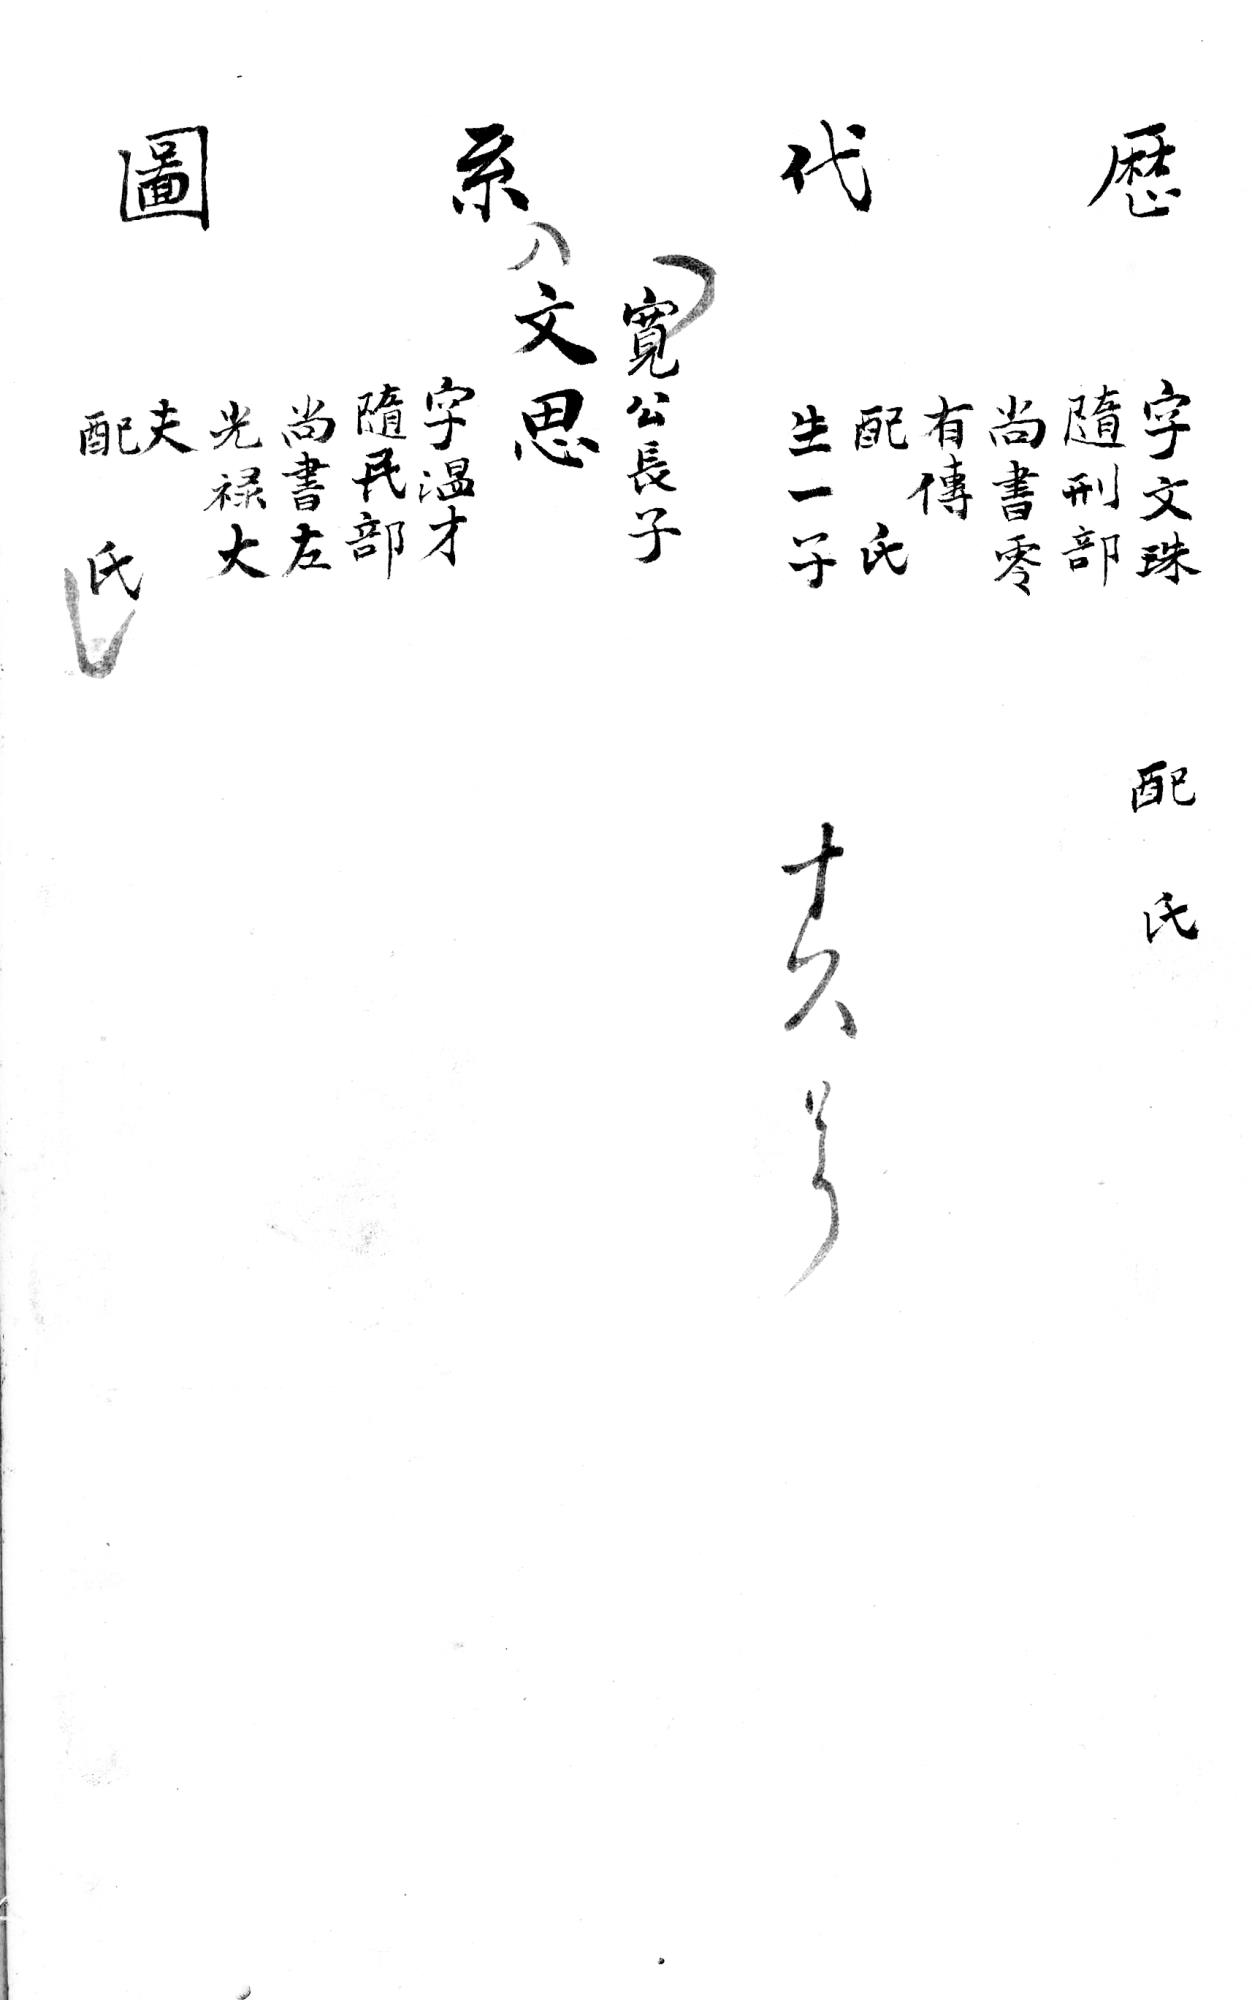 歷代系圖
字文珠
隨刑部
尚書零
有傳
配 氏
生一子
寬公長子
文思
字溫才
隨民部
尚書左
光祿大
夫
配 氏
配 氏